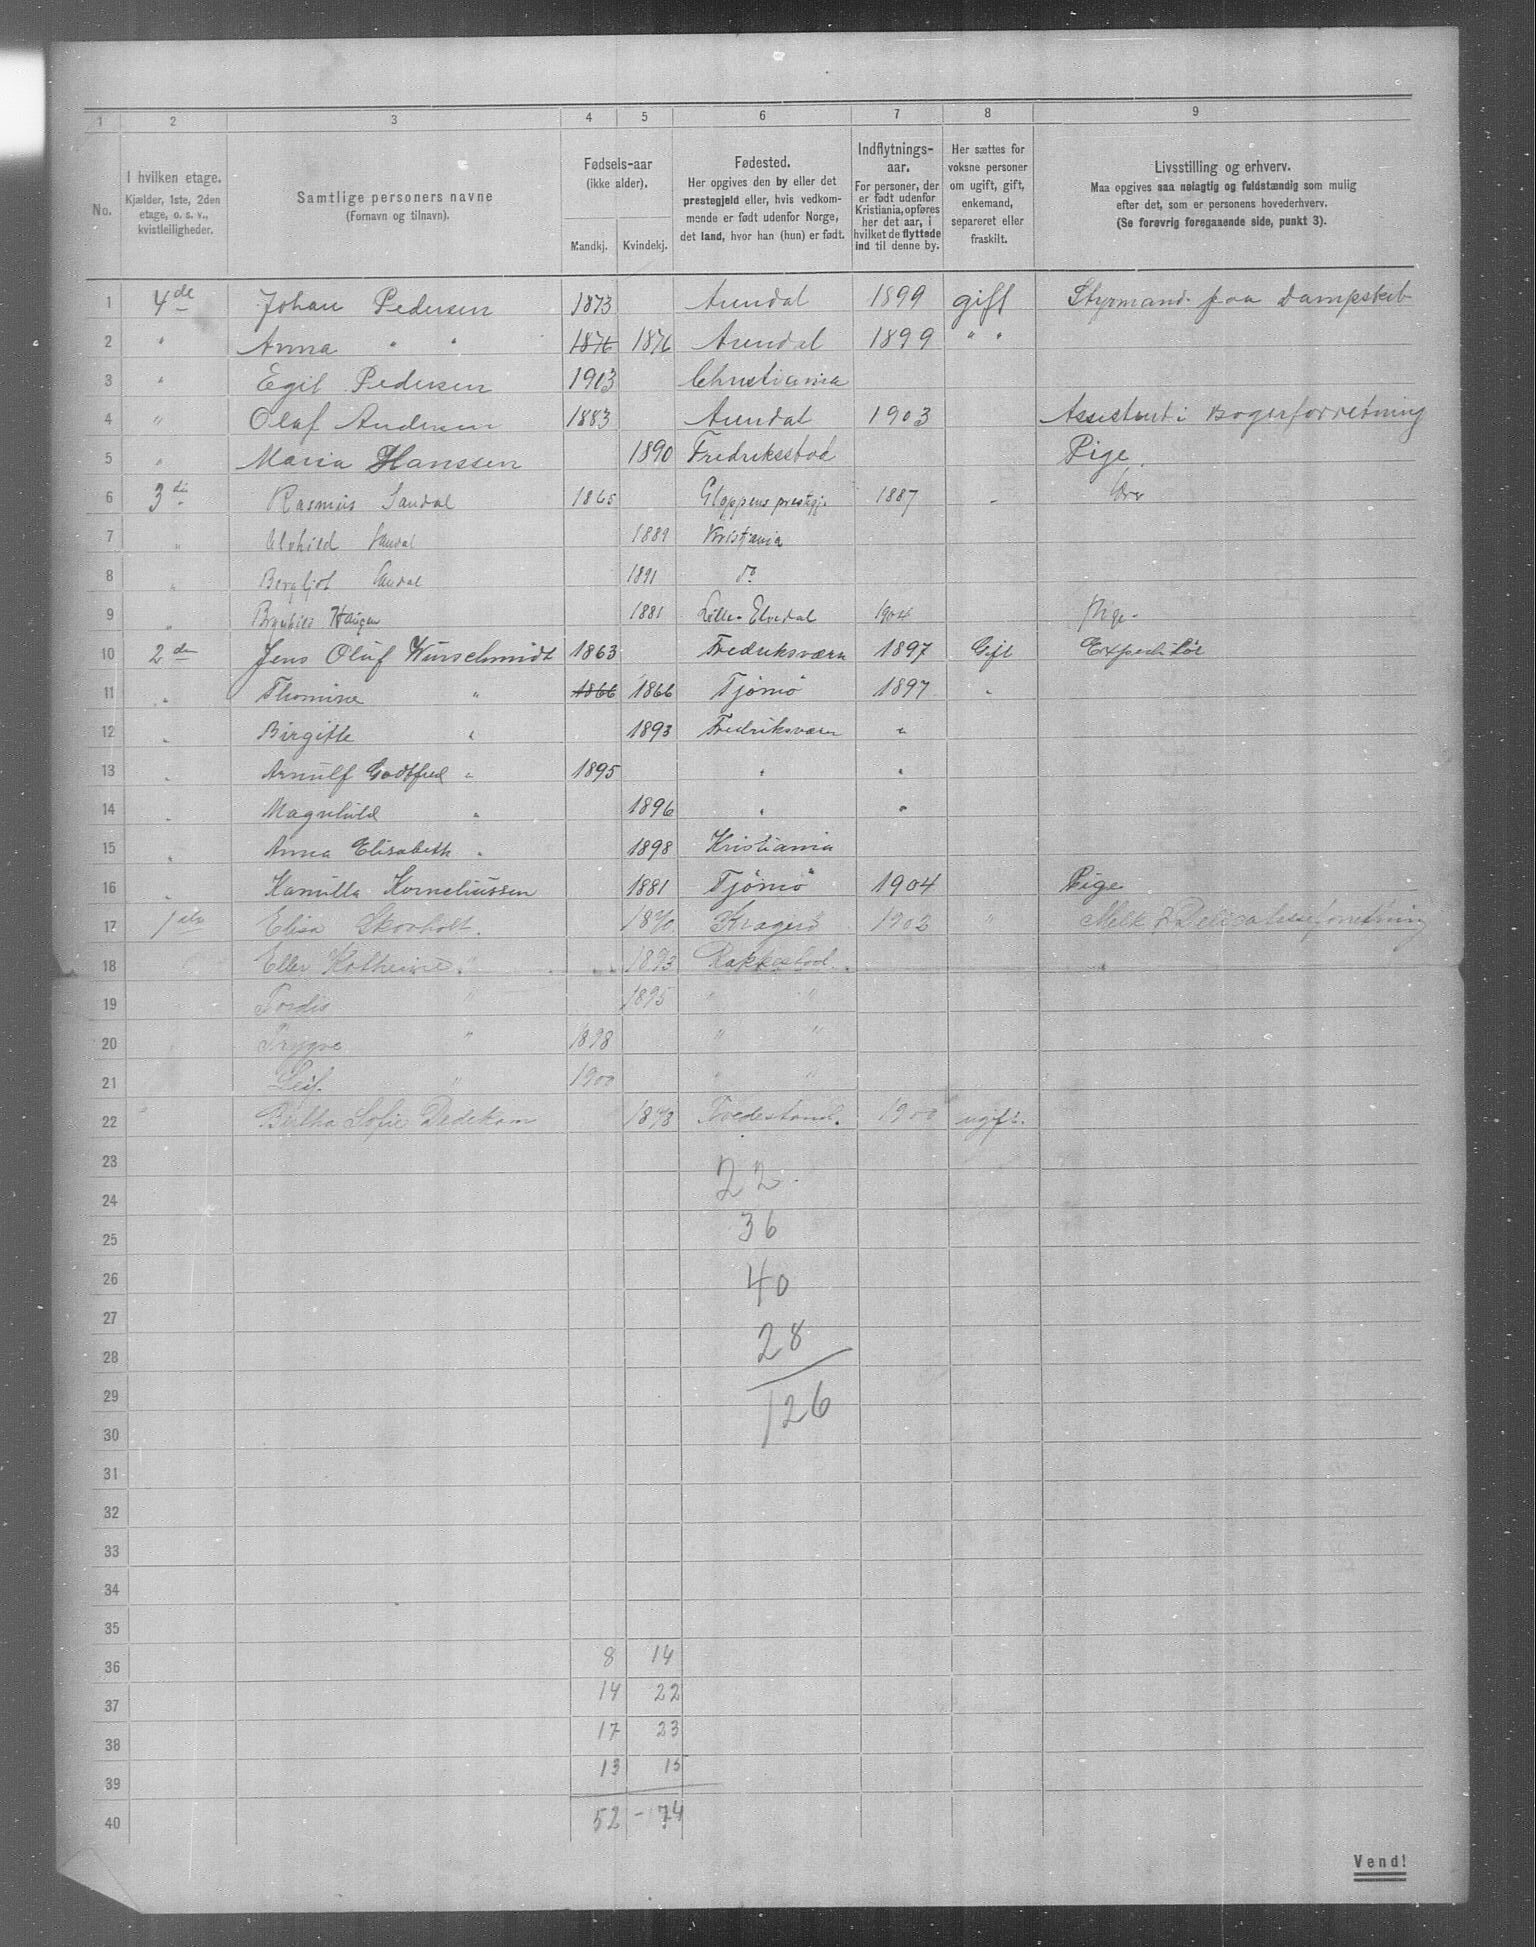 1 2 3 4 5 6 7 8 9
No.
I hvilken etage.
Kjælder, 1ste, 2den
etage, o. s. v.,
kvistleiligheder.
Samtlige personers navne
(Fornavn og tilnavn).
Fødsels-aar
(ikke alder).
Mandkj. Kvindekj.
Fødested.
Her opgives den by eller det
prestegjeld eller, hvis vedkom-
mende er født udenfor Norge,
det land, hvor han (hun) er født.
Indflytnings-
aar.
For personer, der
er født udenfor
Kristiania, opføres
her det aar, i
hvilket de flyttede
ind til denne by.
Her sættes for
voksne personer
om ugift, gift,
enkemand,
separeret eller
fraskilt.
Livsstilling og erhverv.
Maa opgives saa nøiagtig og fuldstændig som mulig
efter det, som er personens hovederhverv.
(Se forøvrig foregaaende side, punkt 3).
1 4de Johan Pedersen 1873 Arendal 1899 gift Styrmand paa Dampskib
2 " Anna " " 1876 1876 Arendal 1899 " "
3 " Egil Pedersen 1903 Christiania
4 " Olaf Andersen 1883 Arendal 1903 Assistent i Bogerforretning
5 " Maria Hanssen 1890 Fredriksstad Pige.
6 3die Rasmus Sandal 1865 Gloppens prestgj. 1887 -
7 " Alvhild Sandal 1889 Kristiania
8 " Bergljot Sandal 1891 do
9 " Brynhild Haugen 1881 Lille-Elvedal 1904 Pige.
10 2den Jens Oluf Würschmidt 1863 Fredriksværn 1897 Gift Expeditør
11 " Thomine " 1866 1866 Tjømø 1897 "
12 " Birgitte " 1893 Fredriksværn "
13 " Arnulf Godtfred " 1895 " "
14 " Magnhild " 1896 " "
15 " Anna Elisabeth " 1898 Kristiania
16 " Kamilla Korneliussen 1881 Tjømø 1904 Pige
17 1ste Elisa Skovholt. 1870 Kragerø 1902 " Melk & Delicatesseforretning
18 Ellen Kathrine " 1893 Rakkestad.
19 Tordis " 1895 " "
20 Trygve " 1898 " "
21 Leif " 1900 " "
22 " Birtha Sofie Dedekam 1878 Tvedestrand. 1900 ugift.
23 22
24
25 36
26 40
27
28 28
29
30 126
31
32
33
34
35
36 8 14
37 14 22
38 17 23
39 13 15
40 52 - 74
Vend!